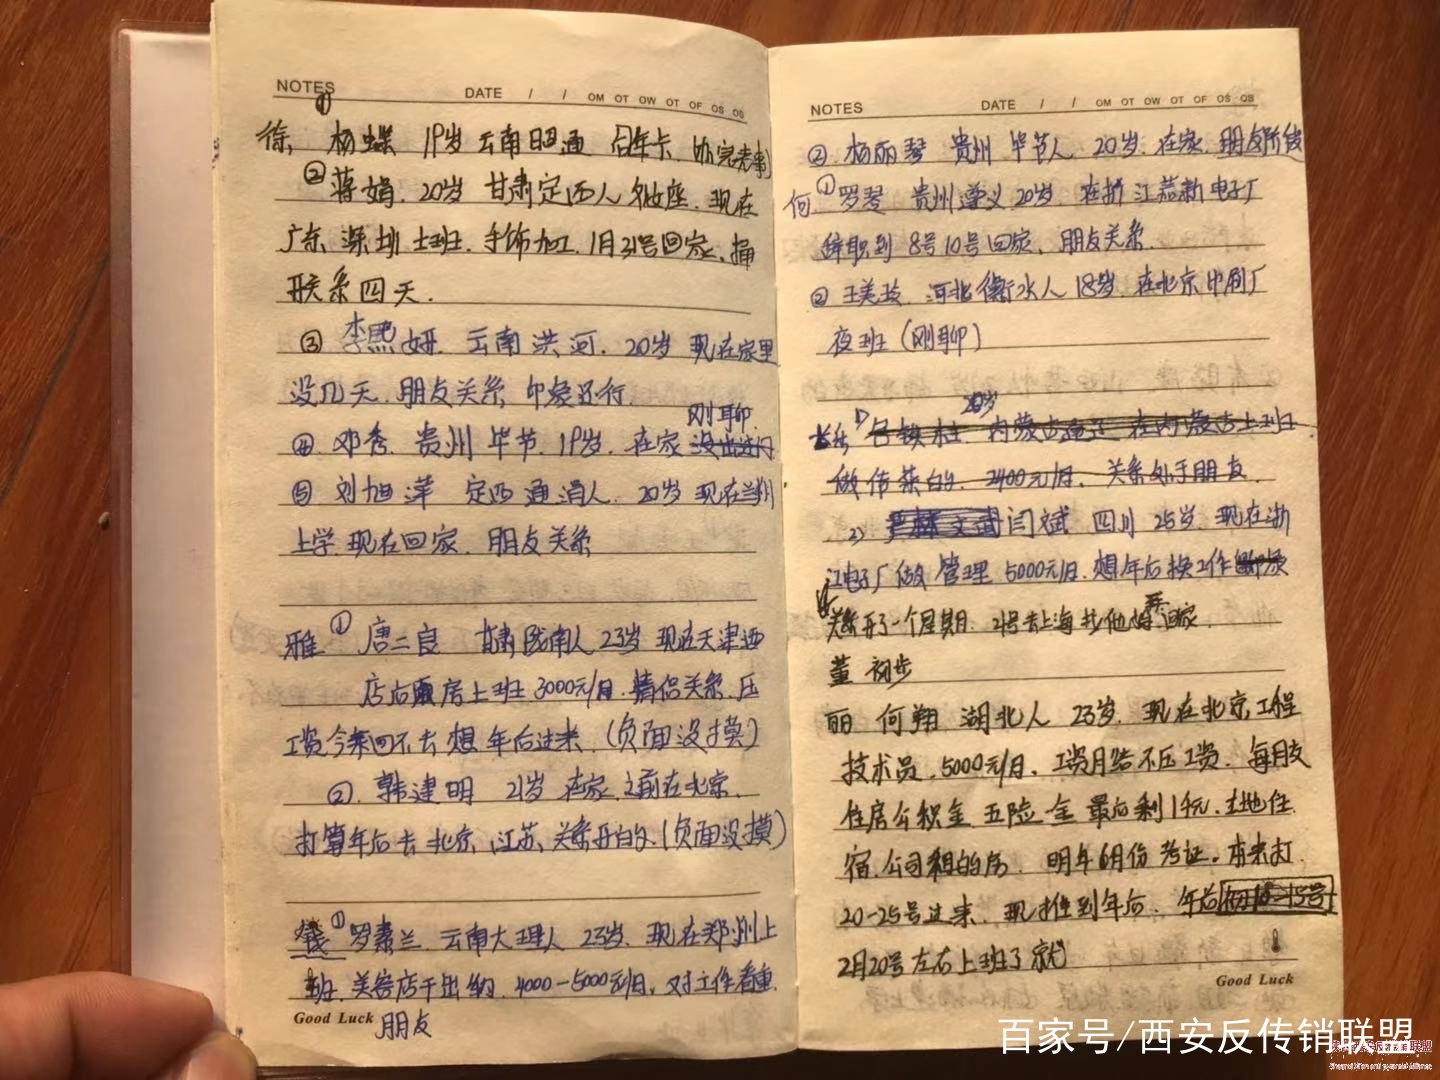 NOTES DATE / / OM OT OW OT OF OS OS
①
徐 杨蝶 19岁 云南昭通
② 蒋娟. 20岁 甘肃定西人 处女座. 现在
广东 深圳 上班. 手饰加工. 1月31号回家.
联系四天.
③ 李熙妍. 云南洪河. 20岁 现在家里
没几天. 朋友关系 印象还行.
刚聊.
④ 邓秀. 贵州 毕节. 19岁. 在家
⑤ 刘旭萍 定西通渭人. 20岁 现在兰州
上学 现在回家. 朋友关系
雅 ① 唐二良 甘肃陇南人 23岁 现在天津西
店后厨房上班. 3000元/月. 情侣关系. 压
工资今年回不去 想年后过来. (负面没摸)
②. 韩建明 21岁 在家. 之前在北京.
打算年后去北京、江苏、关系开的. (负面没摸)
钱 ① 罗素兰. 云南大理人 23岁. 现在郑州上
班. 美容店干出纳. 4000-5000元/月. 对工作看重.
朋友
Good Luck
NOTES DATE / / OM OT OW OT OF OS OS
② 杨丽琴 贵州 毕节人 20岁. 在家. 朋友阶段
何. ① 罗琴 贵州遵义. 20岁 在浙江 新电子厂
辞职到 8号10号回家. 朋友关系.
② 王美玲. 河北衡水人 18岁. 在北京印刷厂
夜班 (刚聊)
20岁
1) 吕铁柱. 内蒙古通辽 在内蒙古上班
做传菜的. 2400元/月. 关系处于朋友.
2) 闫斌 四川 25岁. 现在浙
江电子厂做管理 5000元/月. 想年后换工作
关系开了一个星期. 21号去上海找他 回家.
董 初步
丽 何翔 湖北人 23岁. 现在北京工程
技术员. 5000元/月. 工资月结不压工资. 每月交
住房公积金 五险一金 最后剩1千元. 工地住
宿. 公司租的房. 明年6月份考证. 本来打
20-25号过来. 现推到年后. 年后初10-15号
2月20号左右上班了就
Good Luck
百家号/西安反传销联盟